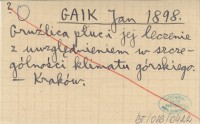 ?
GAIK Jan 1898.
Gruźlica płuc i jej leczenie
z uwzględnieniem w szcze-
gólności klimatu górskiego.
— Kraków.